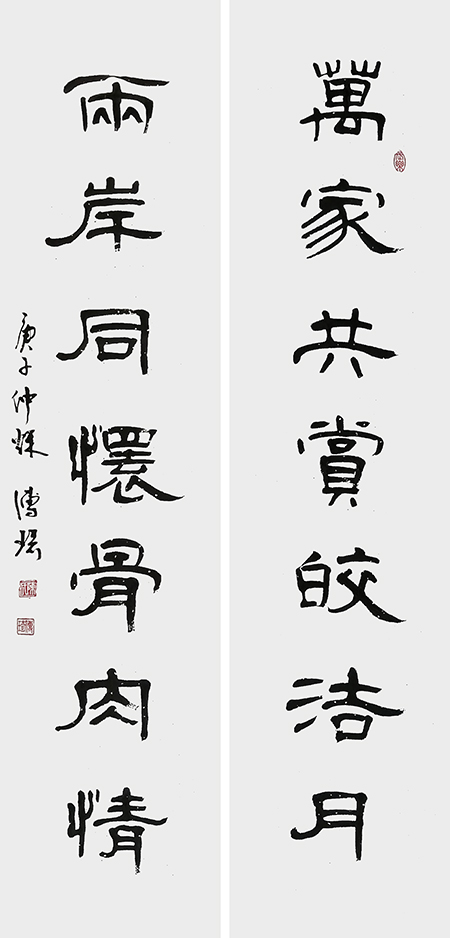 萬家共賞皎洁月
兩岸同懷骨肉情
庚子仲秋